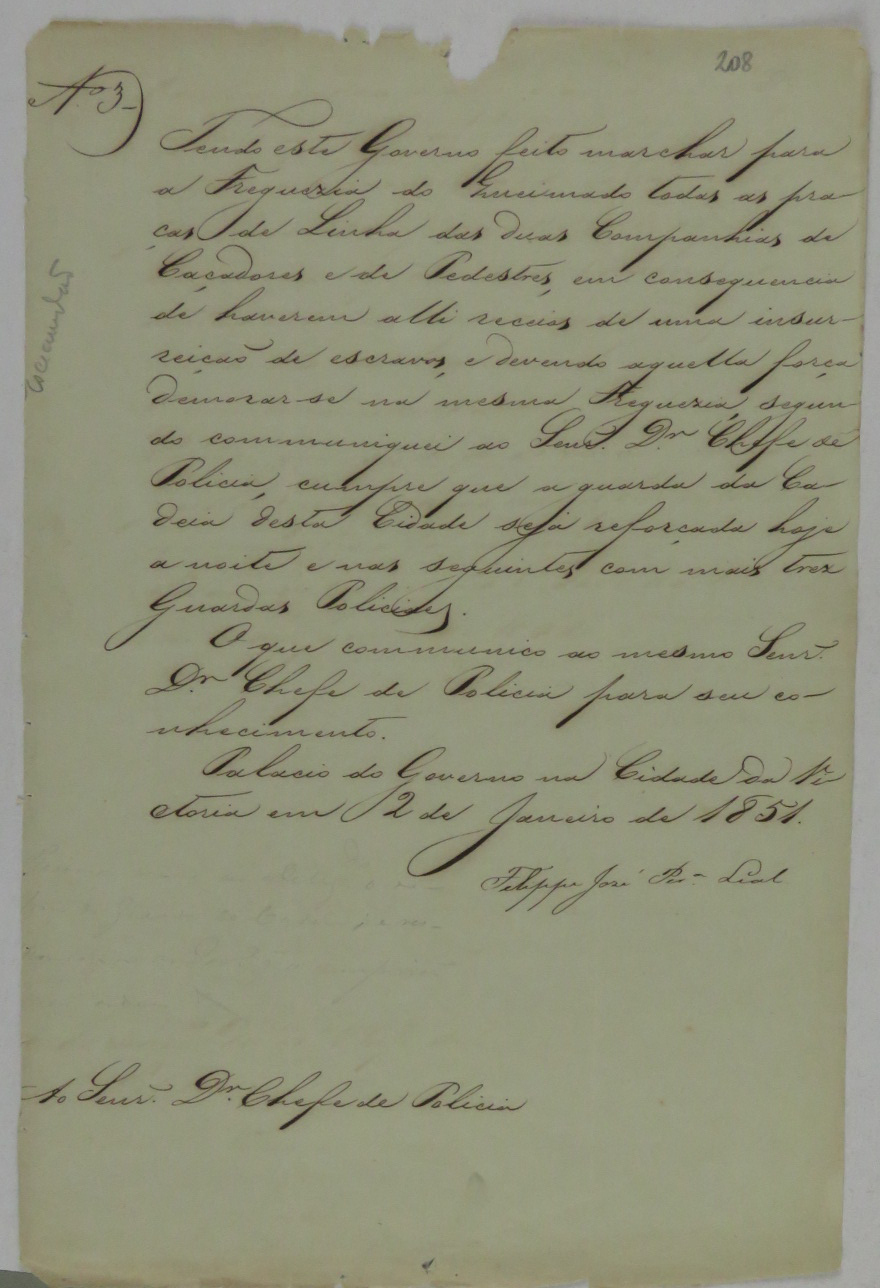 208
Nº 3
Tendo este Governo feito marchar para
a Freguezia do Queimado todas as pra-
ças de Linha das duas Companhias de
Caçadores e de Pedestres, em consequencia
de haverem alli receios de uma insur-
reição de escravos, e devendo aquella força
demorar-se na mesma Freguezia, segun-
do communiquei ao Senr. Dr. Chefe de
Policia, cumpre que a guarda da Ca-
deia desta Cidade seja reforçada hoje
a noite e nas seguintes com mais trez
Guardas Policiaes.
O que communico ao mesmo Senr.
Dr. Chefe de Policia para seu co-
nhecimento.
Palacio do Governo na Cidade da Vi
ctoria em 2 de Janeiro de 1851.
Filippe José Per.ª Leal
Ao Senr. Dr. Chefe de Policia